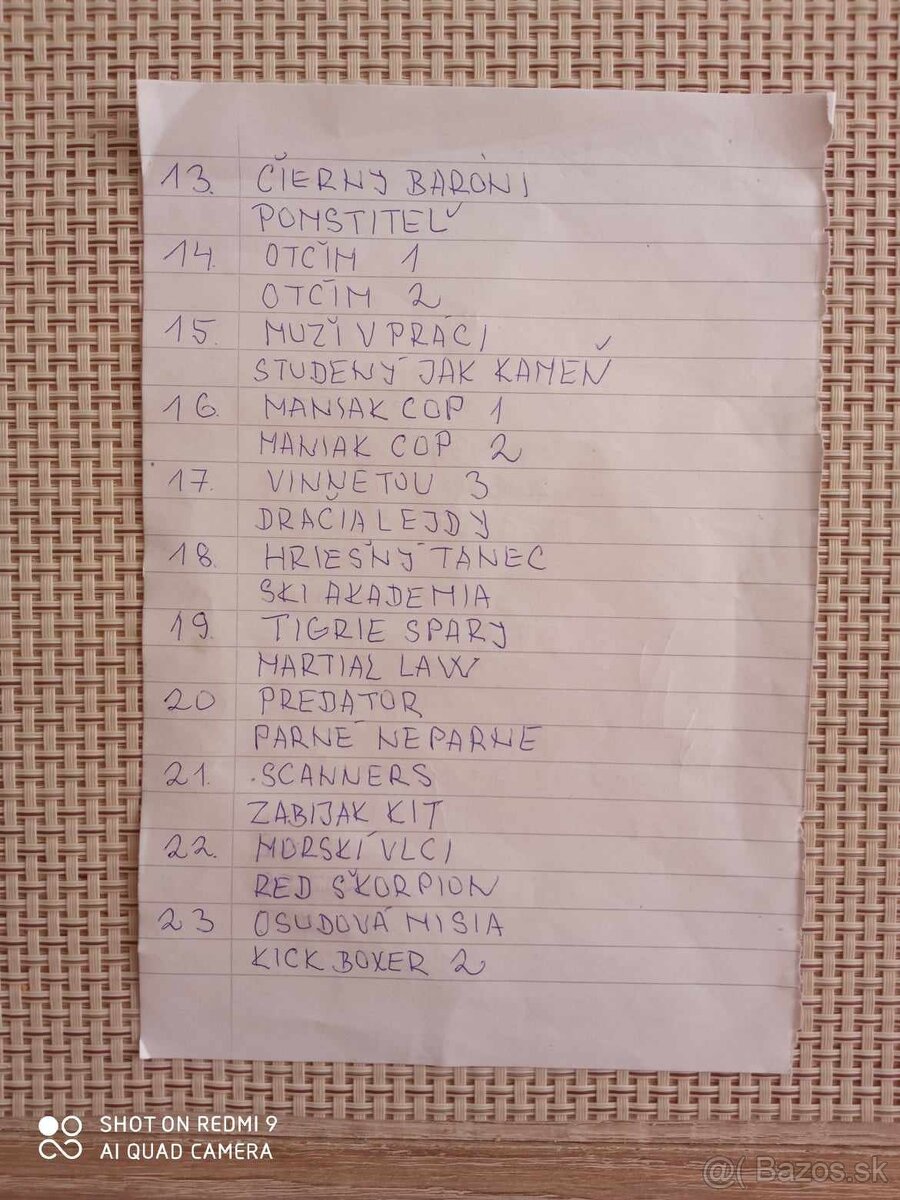 13. ČIERNY BARÓNI
POMSTITEĽ
14. OTČIM 1
OTČIM 2
15. MUŽI V PRÁCI
STUDENÝ JAK KAMEŇ
16. MANIAK COP 1
MANIAK COP 2
17. VINNETOU 3
DRAČIA LEJDY
18. HRIEŠNÝ TANEC
SKI AKADEMIA
19. TIGRIE SPARY
MARTIAL LAW
20 PREDÁTOR
PARNÉ NEPARNE
21. SCANNERS
ZABIJAK KIT
22. MORSKÍ VLCI
RED ŠKORPION
23 OSUDOVÁ MISIA
KICK BOXER 2
SHOT ON REDMI 9
AI QUAD CAMERA
@( Bazos.sk